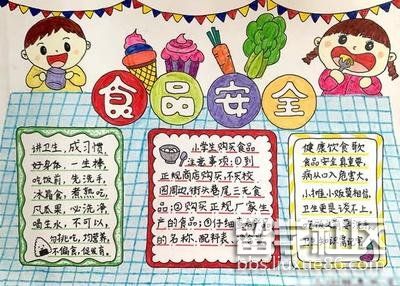 食品安全
讲卫生，成习惯
好身体，一生棒。
吃饭前，先洗手，
冰箱食，煮熟吃，
风瓜果，必洗净，
喝生水，不可以，
勿挑吃，均营养，
不偏食，促生育，
小学生购买食品
注意事项：①到
正规商店购买，不买校
园周边、街头巷尾三无食
品；②购买正规厂家生
产的食品；③仔细
的名称、配料表
健康饮食歌
食品安全真重要，
病从口入危害大。
小摊小贩莫相信，
卫生更是谈不上，
留言社区
bbs.liuxue86.com